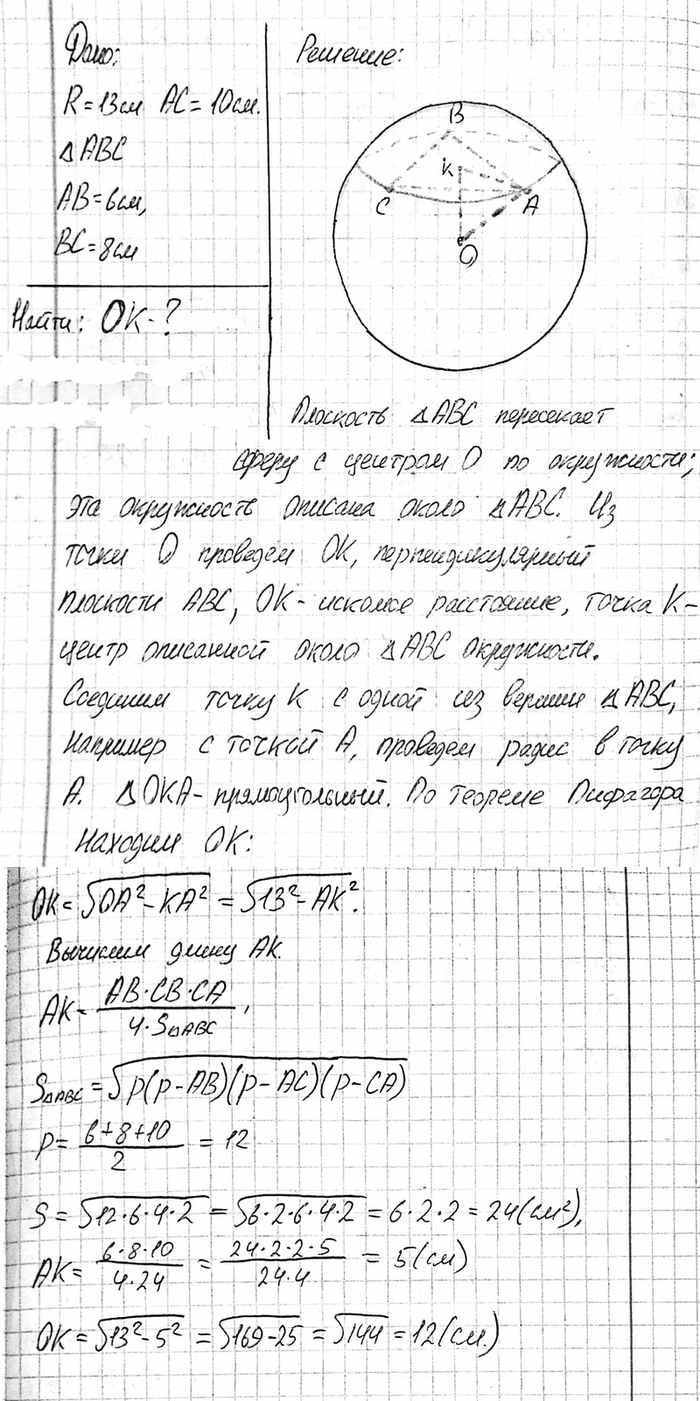 Дано:
R=13см AC=10см.
△ABC
AB=6см,
BC=8см
Найти: OK-?
Решение:
B
K
C
A
O
Плоскость △ABC пересекает
сферу с центром O по окружности;
эта окружность описана около △ABC. Из
точки O проведем OK, перпендикулярный
плоскости ABC, OK- искомое расстояние, точка K-
центр описанной около △ABC окружности.
Соединим точку K с одной из вершин △ABC,
например с точкой A, проведем радис в точку
A. △OKA- прямоугольный. По теореме Пифагора
находим OK:
OK=√(OA²-KA²) = √(13²-AK²).
Вычислим длину AK.
AK= (AB·CB·CA)/(4·S△ABC),
S△ABC=√(p(p-AB)(p-AC)(p-CA))
P= (6+8+10)/2 = 12
S=√(12·6·4·2) =√(6·2·6·4·2) = 6·2·2 = 24(см²),
AK= (6·8·10)/(4·24) = (24·2·2·5)/(24·4) = 5(см)
OK=√(13²-5²) =√(169-25) =√144 =12(см.)